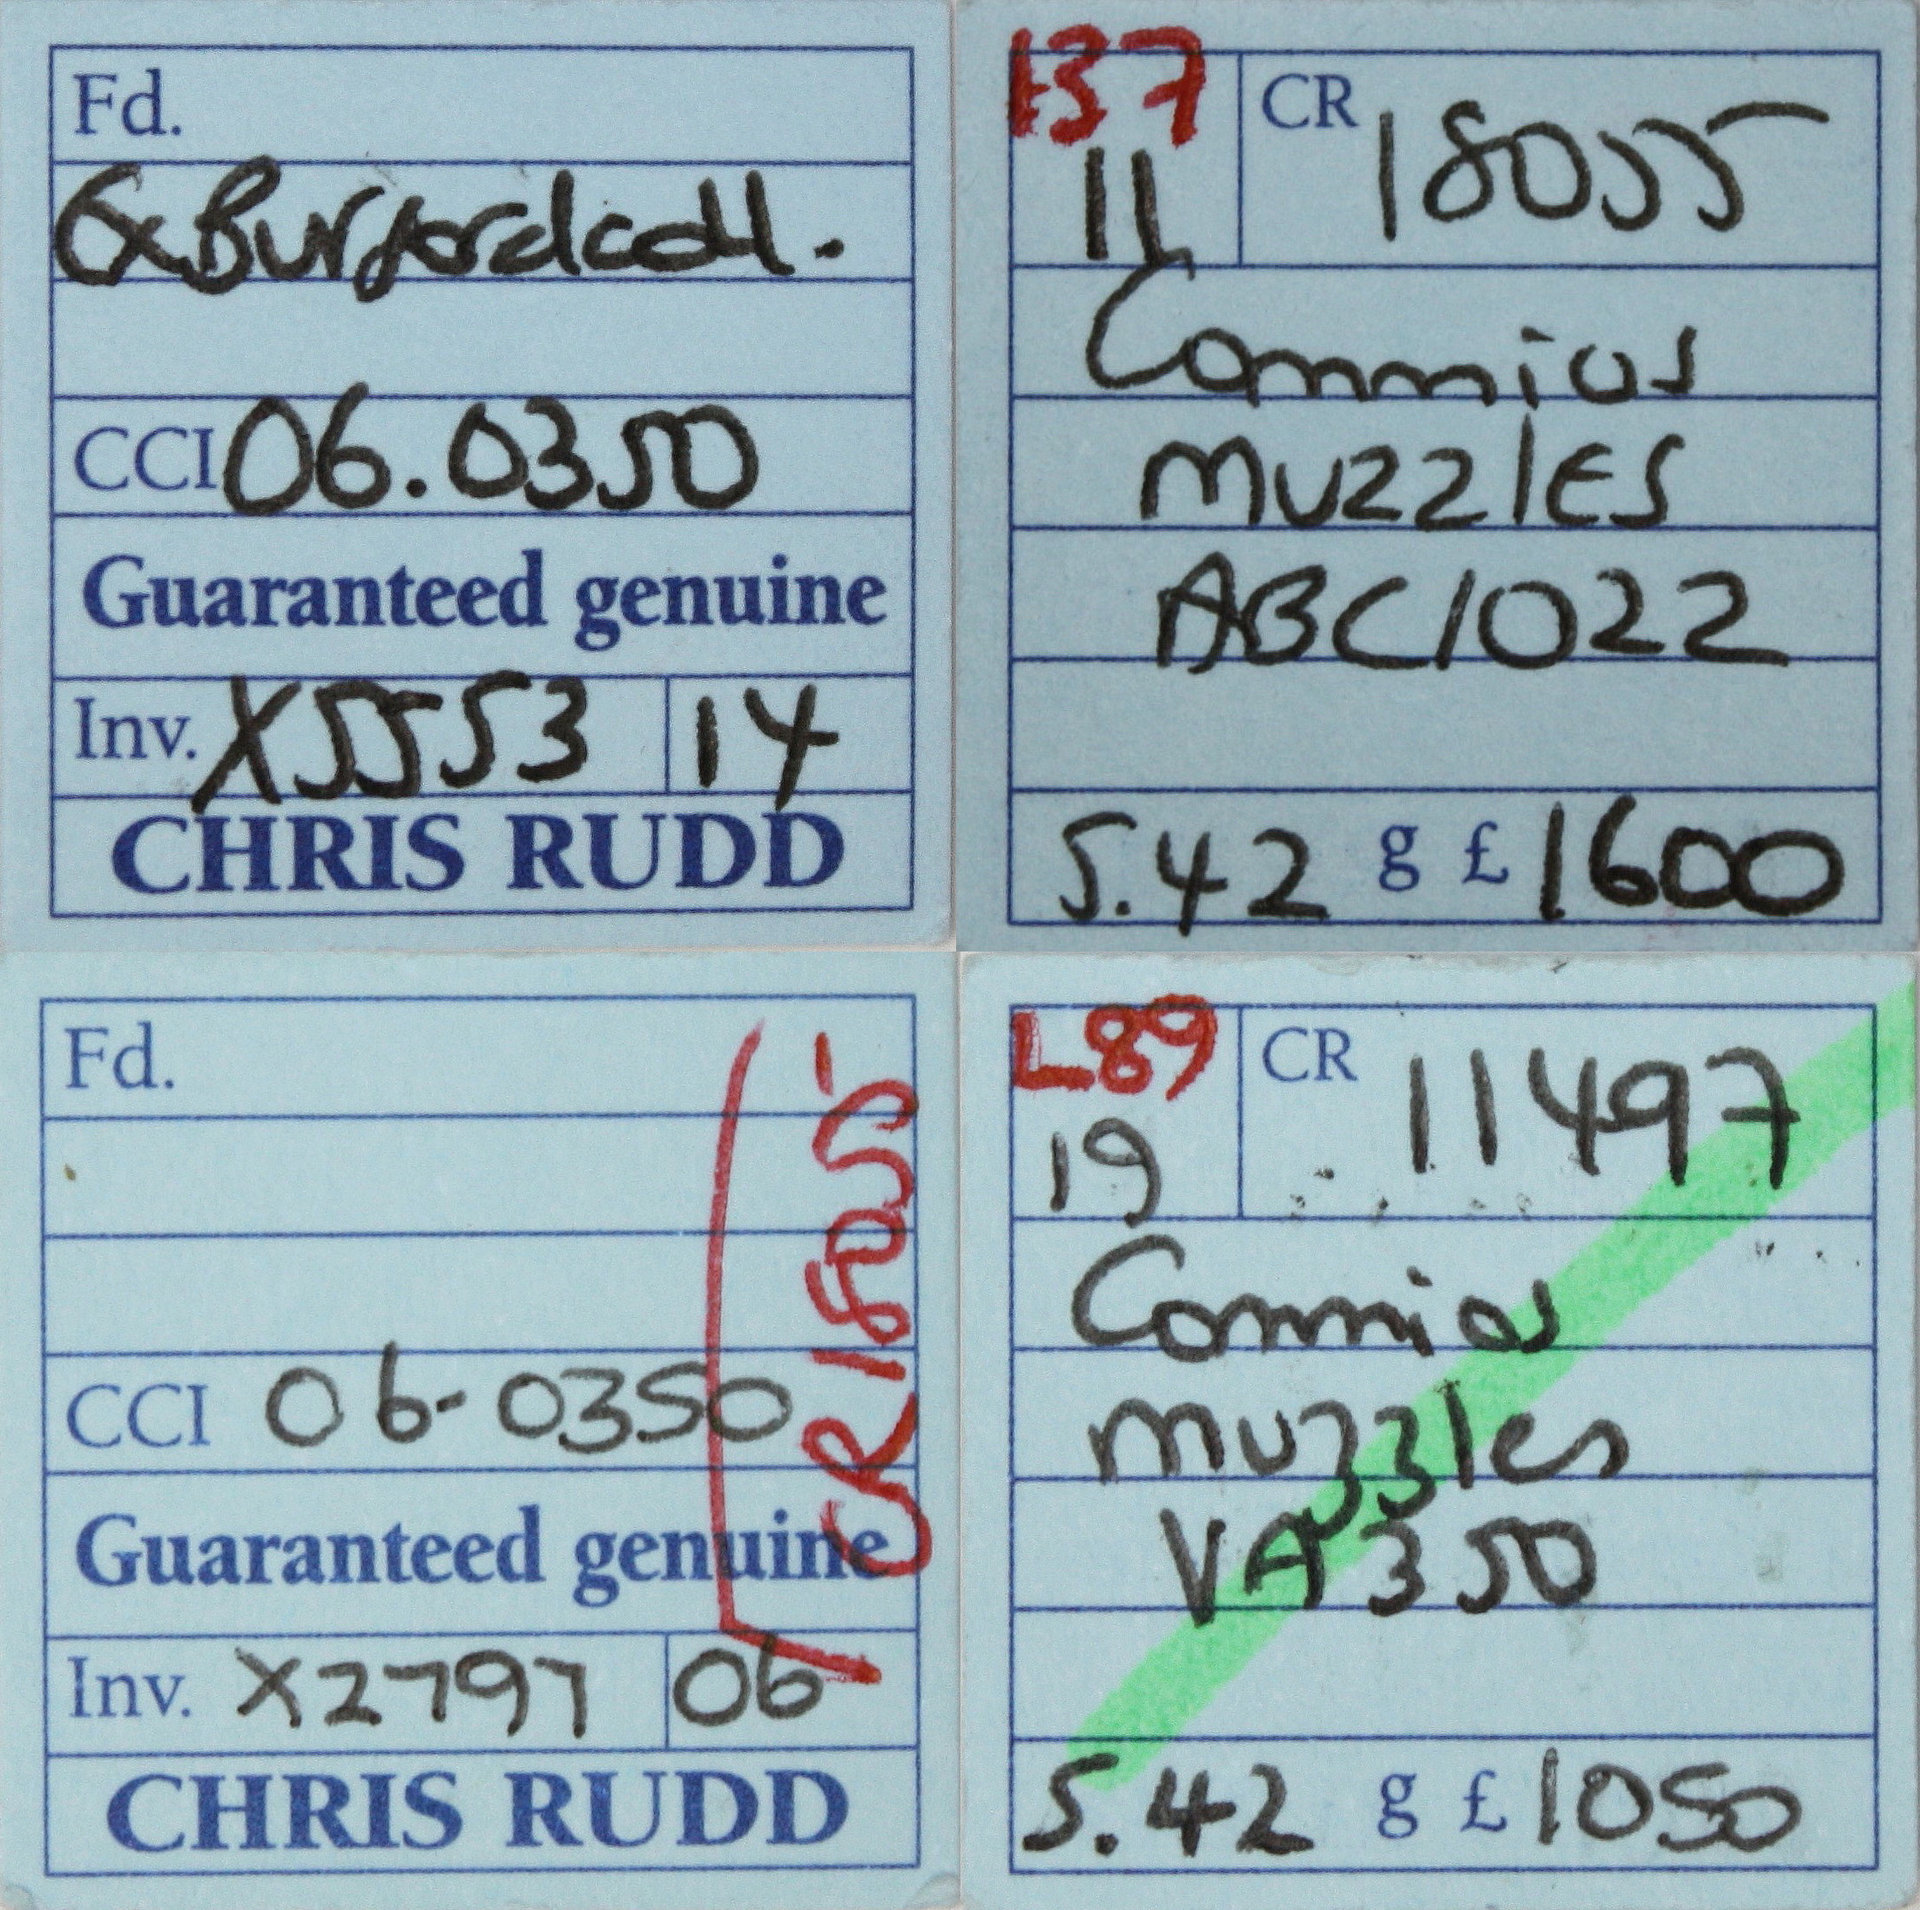 Fd.
Ex Burford coll.
CCI 06.0350
Guaranteed genuine
Inv. X5553 14
CHRIS RUDD
137
11
CR 18055
Commios
Muzzles
ABC1022
5.42 g £ 1600
Fd.
CCI 06-0350
Guaranteed genuine
Inv. X2797 06
CHRIS RUDD
CR18055
L89
19
CR 11497
Commios
Muzzles
VA350
5.42 g £ 1050